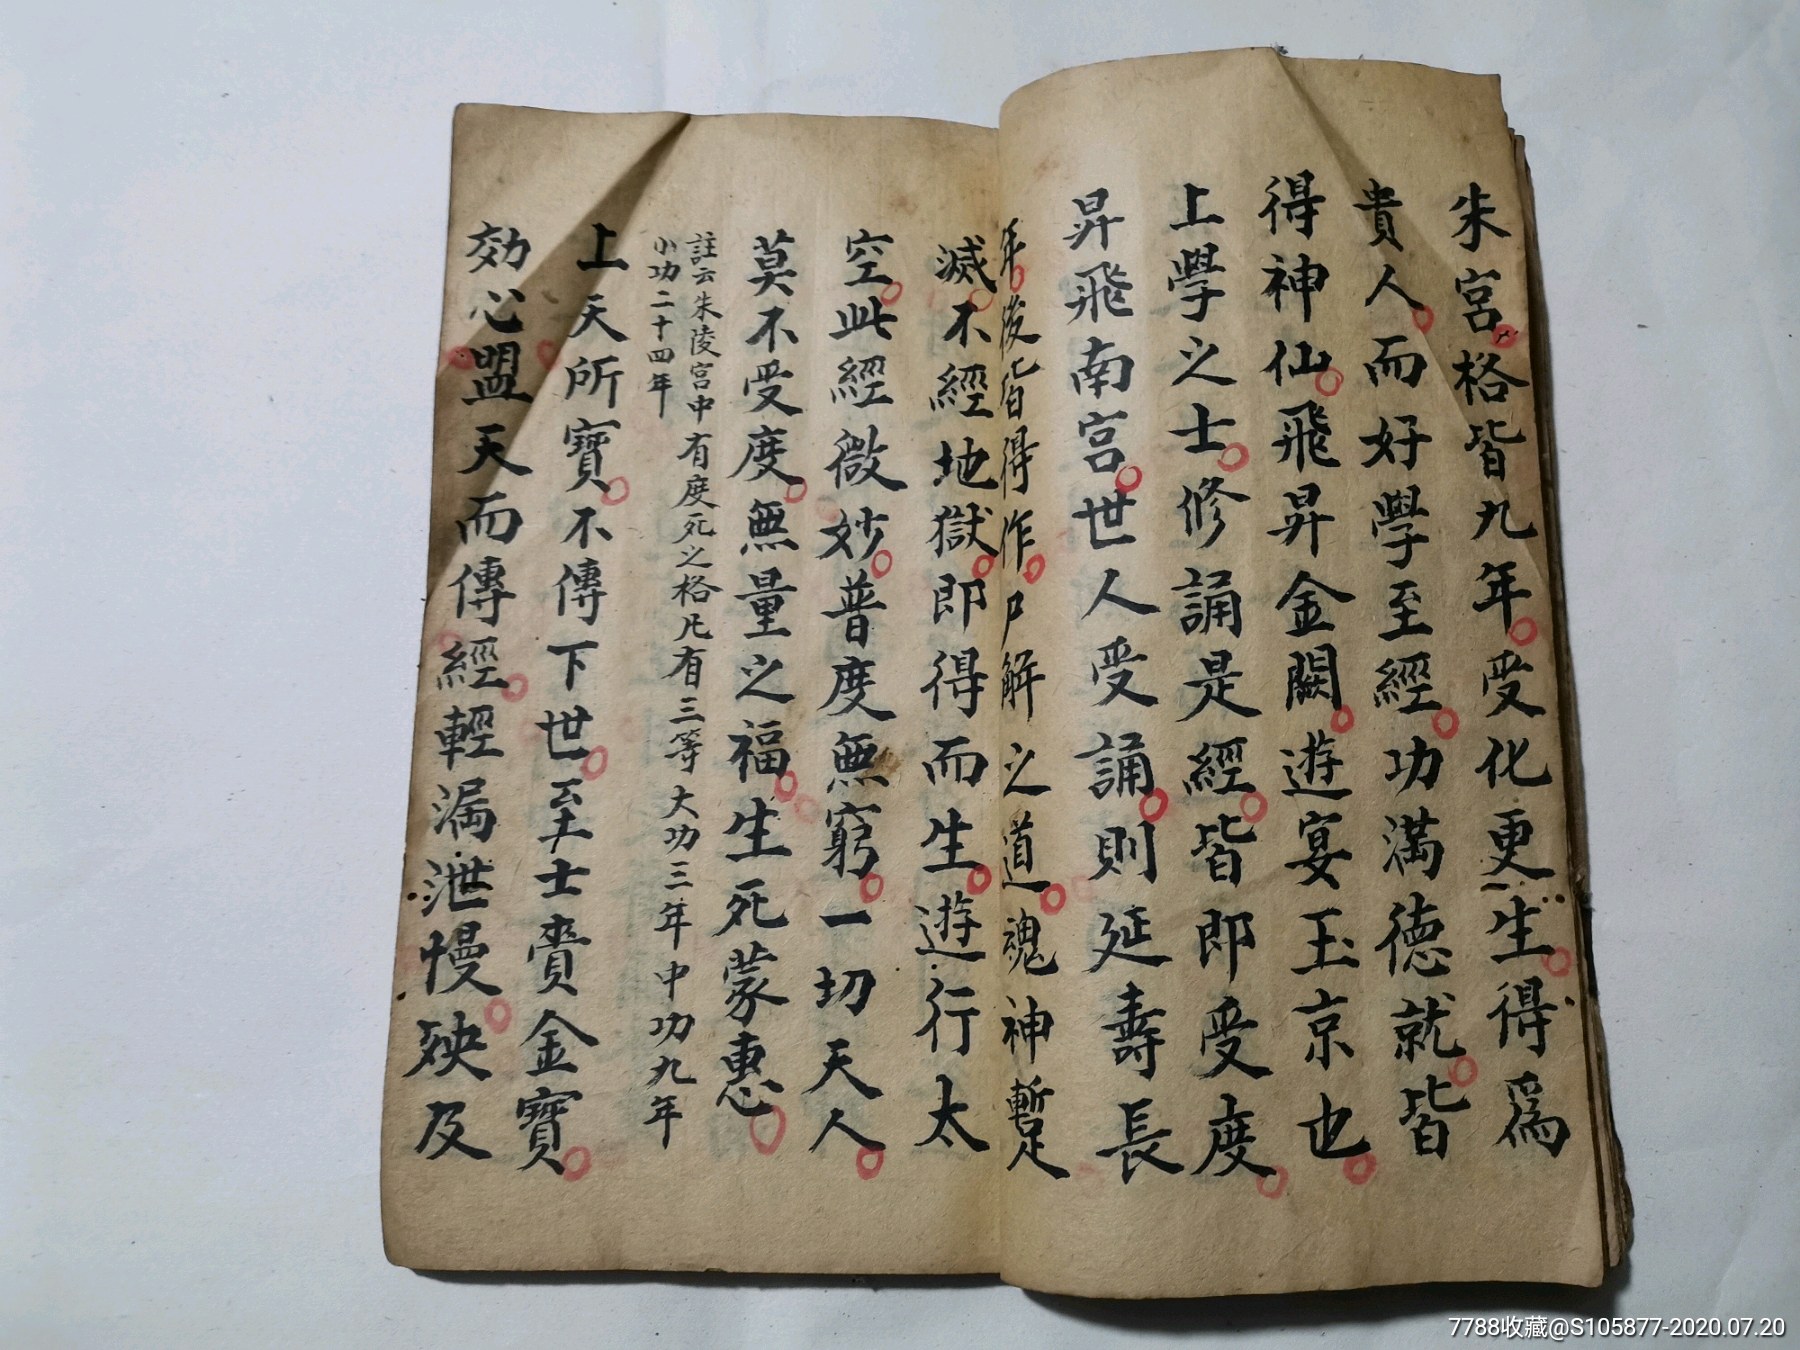 朱宮格皆九年受化更生得爲
貴人而好學至經功滿德就皆
得神仙飛昇金闕遊宴玉京也
上學之士修誦是經皆即受度
昇飛南宮世人受誦則延壽長
年後皆得作尸解之道魂神暫
滅不經地獄即得而生遊行太
空此經微妙普度無窮一切天人
莫不受度無量之福生死蒙惠
註云朱陵宮中有度死之格凡有三等大功三年中功九年
小功二十四年
上天所寶不傳下世至士賷金寶
効心盟天而傳經輕漏泄慢殃及
7788收藏@S105877-2020.07.20